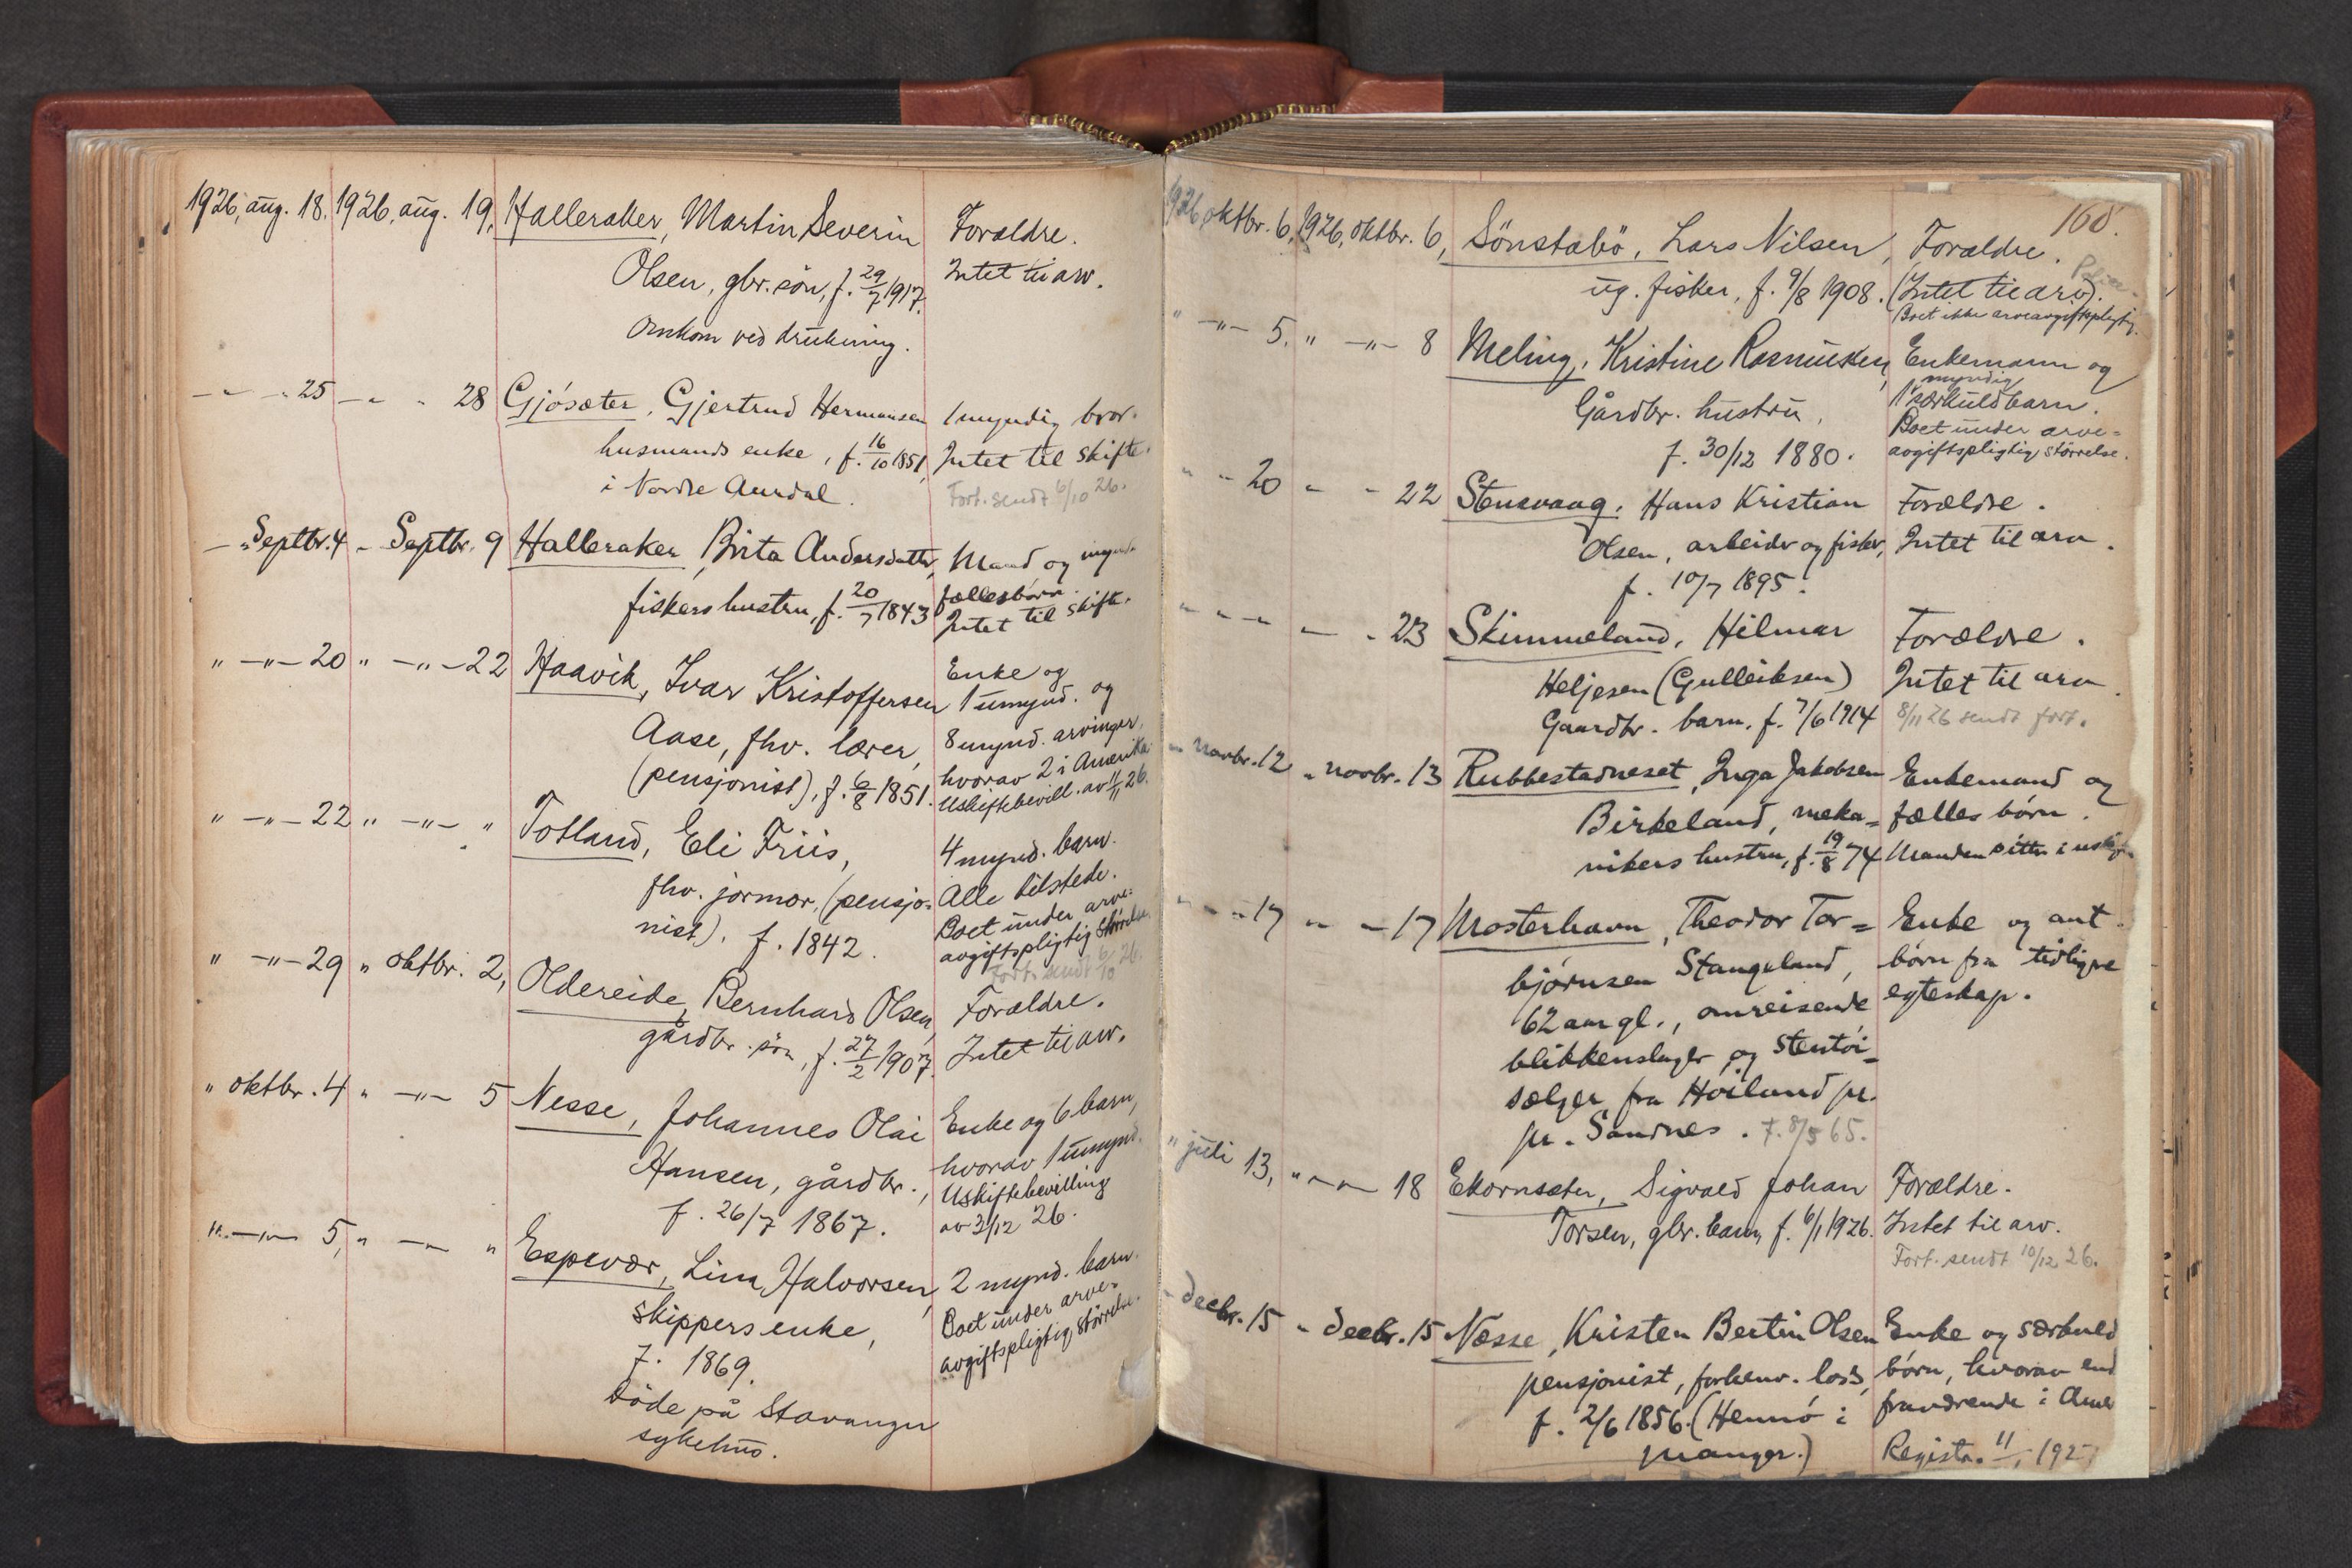 1926, aug. 18. 1926, aug. 19. Halleraker, Martin Severin Forældre.
Olsen, gbr. søn, f. 29/7 1917. Intet til arv.
Omkom ved drukning.
— „ — 25 — „ — 28 Gjøsæter, Gjertrud Hermansen 1 myndig bror.
husmands enke, f. 16/10 1851, Intet til skifte.
i Nordre Aurdal. Fort. sendt 6/10 26.
— „ Septbr. 4 „ Septbr. 9 Halleraker, Brita Andersdatter, Mand og mynd.
fiskers hustru, f. 20/7 1843 fællesbørn.
Intet til skifte.
„ —„— 20 „ —„— 22 Haavik, Ivar Kristoffersen Enke og
1 umynd. og
Aase, fhv. lærer, 8 mynd. arvinger,
(pensjonist), f. 6/8 1851. hvorav 2 i Amerika.
Uskiftebevill. av 11/11 26.
„ —„— 22 „ —„— „ Totland, Eli Friis, 4 mynd. barn.
fhv. jormor, (pensjo= Alle tilstede.
nist). f. 1842. Boet under arve=
avgiftspligtig størrelse.
Fort. sendt 6/10 26.
„ —„— 29 „ oktbr. 2, Oldereide, Bernhard Olsen, Forældre.
gårdbr. søn, f. 27/2 1907. Intet til arv.
„ oktbr. 4 „ —„— 5 Nesse, Johannes Olai Enke og 6 barn,
Hansen, gårdbr., hvorav 1 umynd.
f. 26/7 1867. Uskiftebevilling
av 3/12 26.
„ —„— 5, „ —„— „ Espevær, Lina Halvorsen, 2 mynd. barn.
skippers enke, Boet under arve=
f. 1869. avgiftspligtig størrelse.
Døde på Stavanger
sykehus.
168.
1926, oktbr. 6, 1926, oktbr. 6, Sønstabø, Lars Nilsen, Forældre.
ug. fisker, f. 9/8 1908. (Intet til arv).
Boet ikke arveavgiftspligtig.
„ —„— 5. „ —„— 8 Meling, Kristine Rasmussen, Enkemann og
Gårdbr. hustru, 1 myndig særkuldbarn.
f. 30/12 1880. Boet under arve=
avgiftspligtig størrelse.
„ — „ 20 „ — „ 22 Stensvaag, Hans Kristian Forældre.
Olsen, arbeider og fisker, Intet til arv.
f. 10/7 1895.
„ — „ — „ — „ 23 Skimmeland, Hilmar Forældre.
Heljesen (Gulleiksen) Intet til arv.
Gaardbr. barn, f. 7/6 1914 8/11 26 sendt fort.
„ novbr. 12 „ novbr. 13 Rubbestadneset, Inga Jakobsen Enkemand og
Birkeland, meka= fælles børn.
nikers hustru, f. 19/8 74 Manden sitter i uskif
„ — „ 17 „ — 17 Mosterhavn, Theodor Tor= Enke og ant.
bjørnsen Stangeland, børn fra tidligere
62 aar gl., omreisende egteskap.
blikkenslager og stentøi=
sælger fra Høiland pr.
pr. Sandnes. f. 8/5 65.
„ juli 13, „ — „ — 18 Ekornsæter, Sigvald Johan Forældre.
Torsen, gbr. barn, f. 6/1 1926. Intet til arv.
Fort. sendt 10/12 26.
„ decbr. 15 „ decbr. 15 Næsse, Kristen Bertin Olsen Enke og særkuld
pensjonist, forhenv. lods, børn, hvorav end
f. 2/6 1856. (Hennø i fraværende i Amer
Manger.) Registr. 11/1 1927